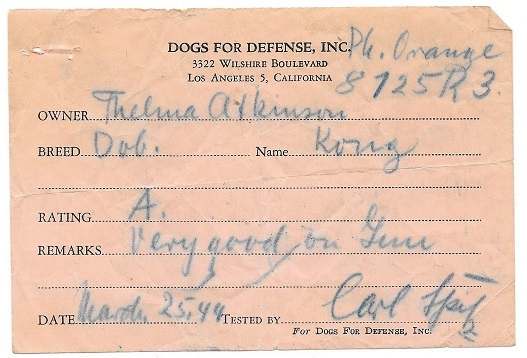 DOGS FOR DEFENSE, INC. Ph. Orange
3322 WILSHIRE BOULEVARD
LOS ANGELES 5, CALIFORNIA 8725R3.
OWNER Thelma Atkinson
BREED Dob. Name Kong
RATING A.
REMARKS Very good on Gun
DATE March. 25.44 TESTED BY Carl
For DOGS FOR DEFENSE, INC.